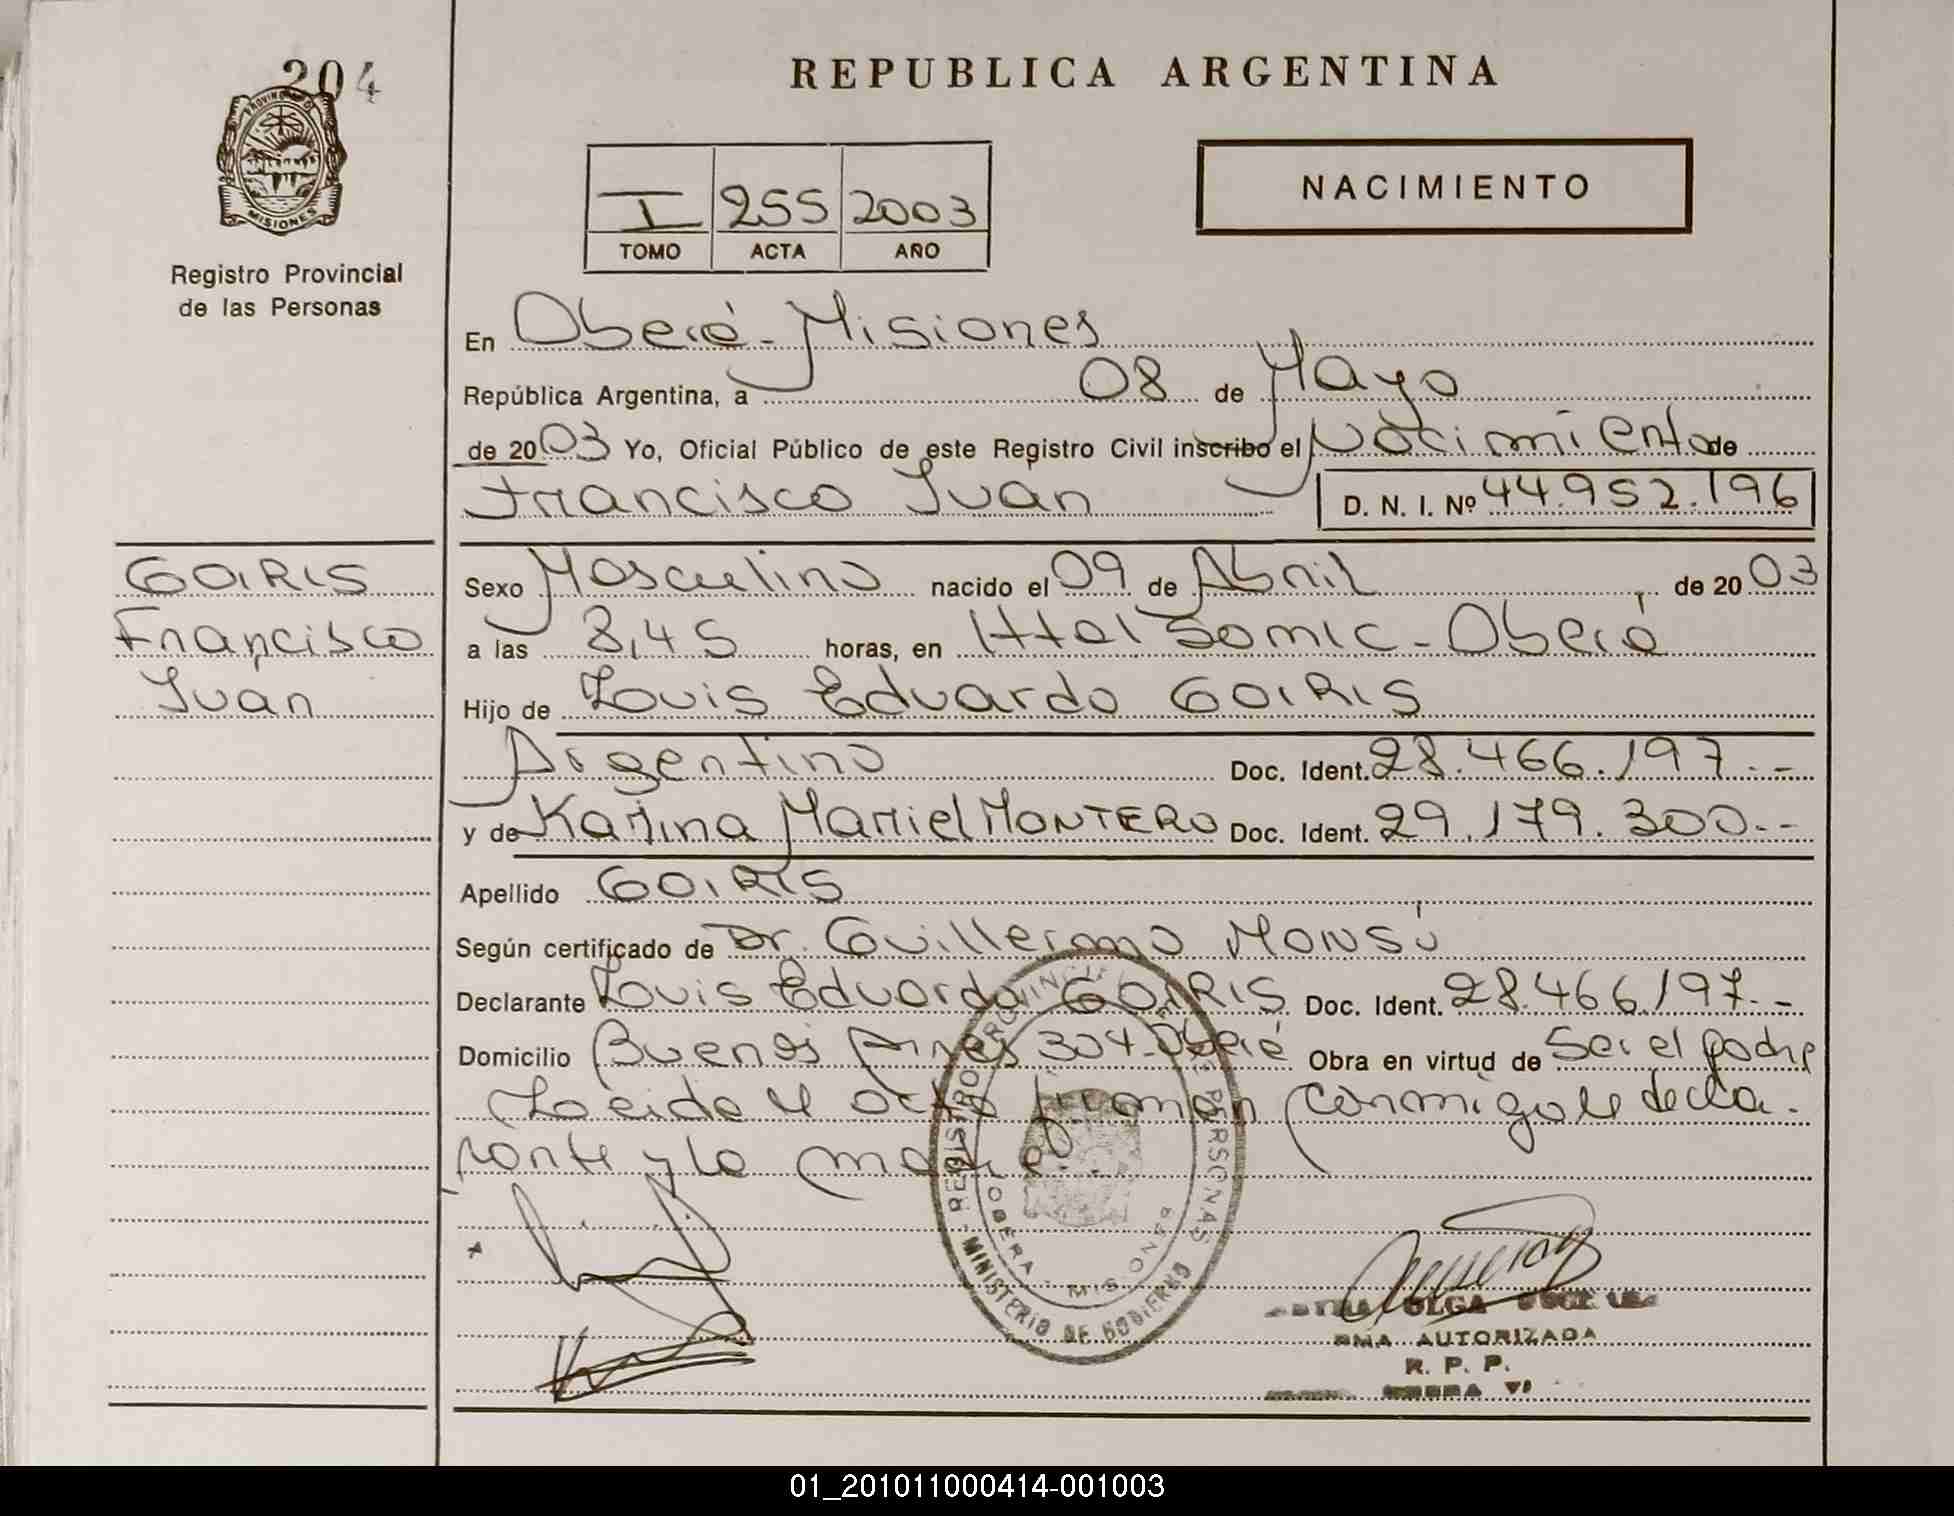 204
PROVINCIA DE
MISIONES
Registro Provincial
de las Personas
REPUBLICA ARGENTINA
I 255 2003
TOMO ACTA AÑO
NACIMIENTO
En Oberá - Misiones
República Argentina, a 08 de Mayo
de 2003 Yo, Oficial Público de este Registro Civil inscribo el Nacimiento de
Francisco Juan D. N. I. Nº 44.952.196
GOIRIS
Francisco
Juan
Sexo Masculino nacido el 09 de Abril, de 2003
a las 8,45 horas, en Htal Samic - Oberá
Hijo de Louis Eduardo GOIRIS
Argentino Doc. Ident. 28.466.197.--
y de Karina Mariel MONTERO Doc. Ident. 29.179.300.--
Apellido GOIRIS
Según certificado de Dr. Guillermo Monsú
Declarante Louis Eduardo GOIRIS Doc. Ident. 28.466.197.--
Domicilio Buenos Aires 304-Oberá Obra en virtud de Ser el padre
Leida el acta firman conmigo el decla-
rante y la madre.
REGISTRO PROVINCIAL DE LAS PERSONAS
MINISTERIO DE GOBIERNO
OBERA - MISIONES
OLGA
AUTORIZADA
R. P. P.
01_201011000414-001003